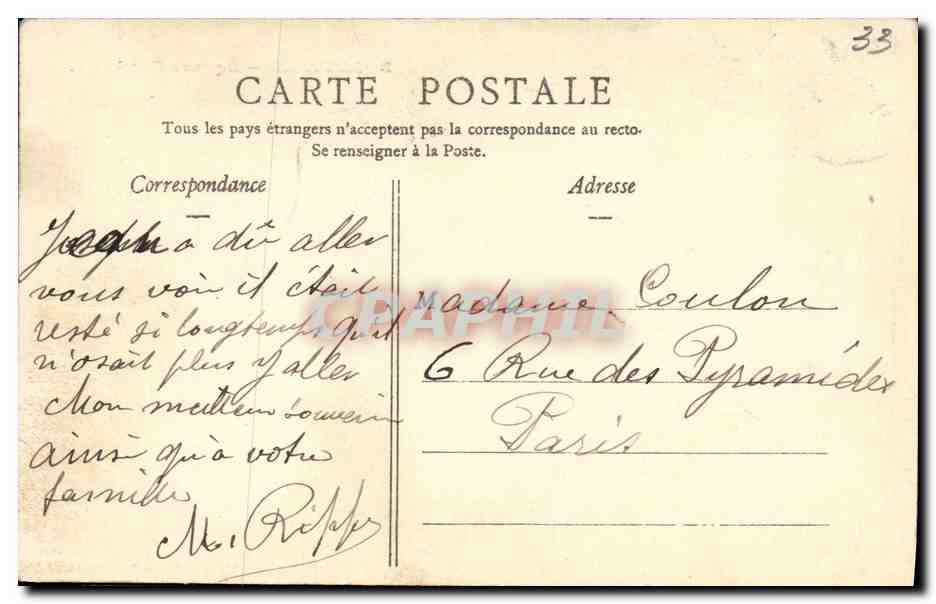 33
CARTE POSTALE
Tous les pays étrangers n'acceptent pas la correspondance au recto.
Se renseigner à la Poste.
Correspondance
Adresse
Joseph a dû aller
vous voir il était
resté si longtemps qu'il
n'osait plus y aller
Mon meilleur souvenir
ainsi qu'à votre
famille
M. Rippe
Madame Coulon
6 Rue des Pyramides
Paris
CPAPHIL